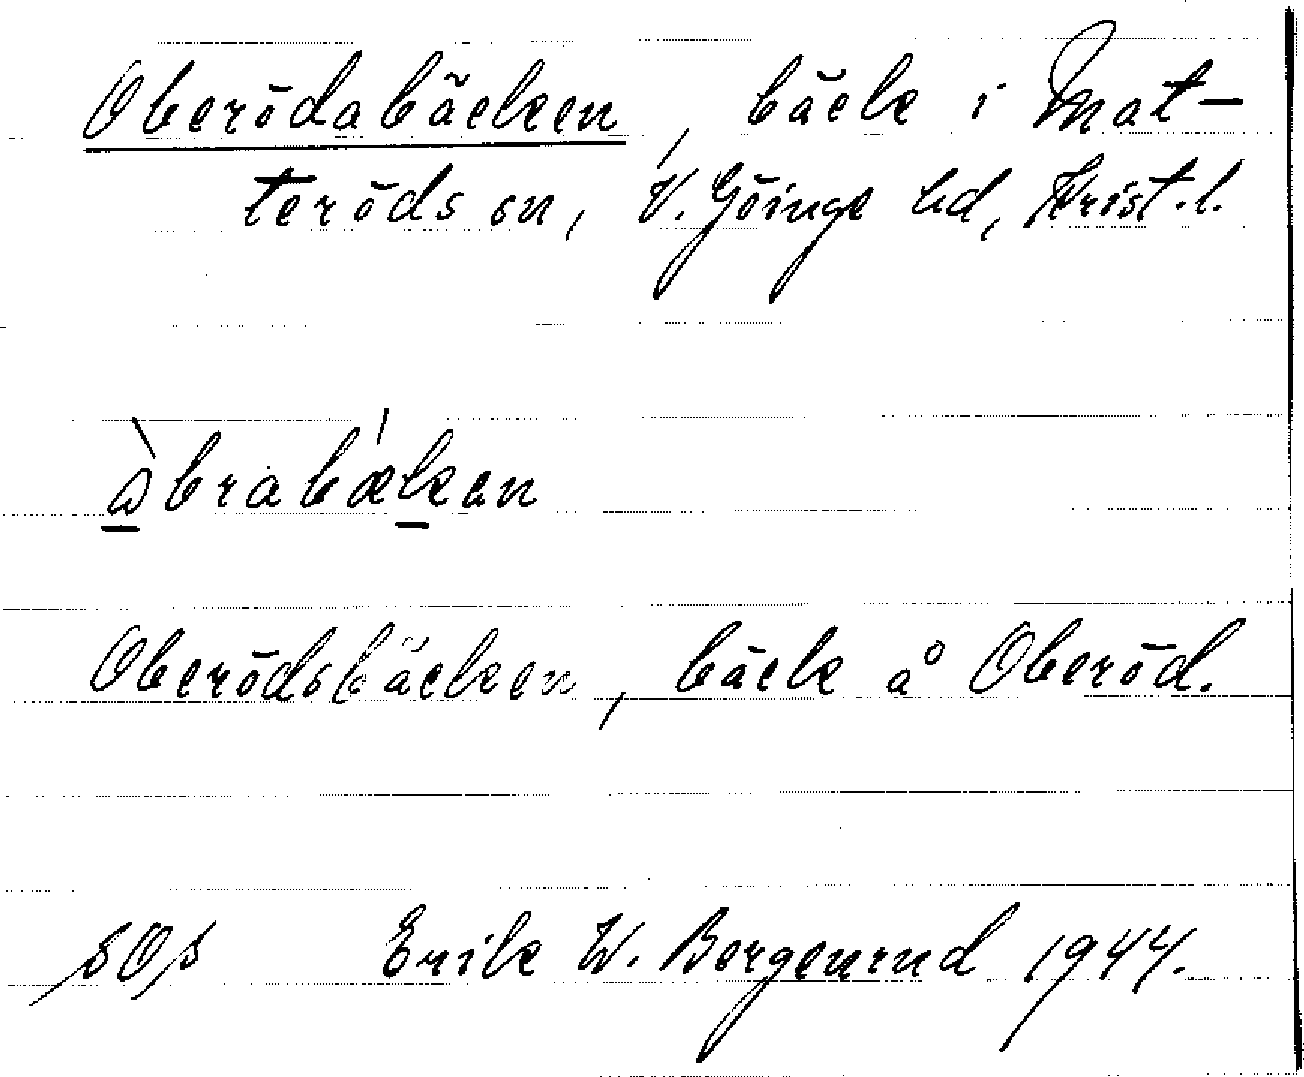 Oberödabäcken, bäck i Mat-
teröds sn, V. Göinge hd, Krist. l.
àbrabǽkan
Oberödsbäcken, bäck å Oberöd.
sOs Erik W. Borgenrud 1944.